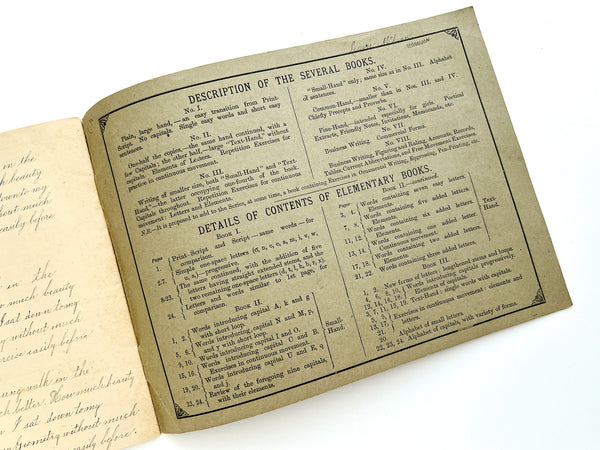 DESCRIPTION OF THE SEVERAL BOOKS.
No. I.
Plain, large hand,—an easy transition from Print-
Script. No capitals. Single easy words and short easy
sentences.
No. II.
One-half the copies,—the same hand continued, with a
few Capitals; the other half,—large "Text-Hand," without
capitals. Elements of Letters. Repetition Exercises for
practice in continuous movement.
No. III.
Writing of smaller size, both "Small-Hand" and "Text-
Hand,"—the latter occupying one-fourth of the book.
Capitals throughout. Repetition Exercises for continuous
movement: Letters and Elements.
No. IV.
"Small-Hand" only; same size as in No. III. Alphabet
of sentences.
No. V.
Common-Hand,—smaller than in Nos. III. and IV.
Chiefly Precepts and Proverbs.
No. VI.
Fine-Hand,—intended especially for girls. Poetical
Extracts, Friendly Notes, Invitations, Memoranda, etc.
No. VII.
Business Writing. Commercial Forms.
No. VIII.
Business Writing, Figuring and Ruling, Accounts, Records,
Tables, Current Abbreviations, and Free Movement Exercises.
N.B.—It is proposed to add to the Series, at some time, a book containing Exercises in Ornamental Writing, Engrossing, Pen-Printing, etc.
DETAILS OF CONTENTS OF ELEMENTARY BOOKS.
BOOK I.
Pages
1. Print-Script and Script—same words—for
comparison.
Simple one-space letters
2-7.
The same continued, with the addition of five
letters having straight extended stems, and the
8-23. two remaining one-space letters
24. Letters and words similar to 1st page, for
comparison.
BOOK II.
1, 2. Words introducing capital A, k and g
with short loop.
5, 6. Words introducing capital N and M, p,
and y with short loop.
9, 10. Words introducing capital I and O.
Words introducing capital C and B.
15, 16. Exercises in continuous movement.
19, 20. Words introducing capital U and E, q
and j.
23, 24. Review of the foregoing nine capitals,
with their elements.
Small-
Hand.
BOOK II.—(continued).
Pages
3, 4. Words containing seven easy letters.
Elements.
7, 8. Words containing five added letters.
Elements.
11, 12. Words containing six added letters.
Elements.
13, 14. Words containing one added letter.
Continuous movement.
17, 18. Words containing two added letters.
Elements.
21, 22. Words containing three added letters.
Text-
Hand.
BOOK III.
1, 2. New forms of letter: lengthened stems and loops.
Words introducing capitals progressively.
Elements.
Text-Hand: single words with capitals.
Exercises in continuous movement: elements and
letters.
Alphabet of small letters.
22, 23, 24. Alphabet of capitals, with variety of forms.
on the
much beauty
down to my
without much
easily before
in the
much beauty
I sat down to
my without much
exercise easily before
young walk in the
much better. How much beauty
When I sat down to my
Geometry without much
easily before.